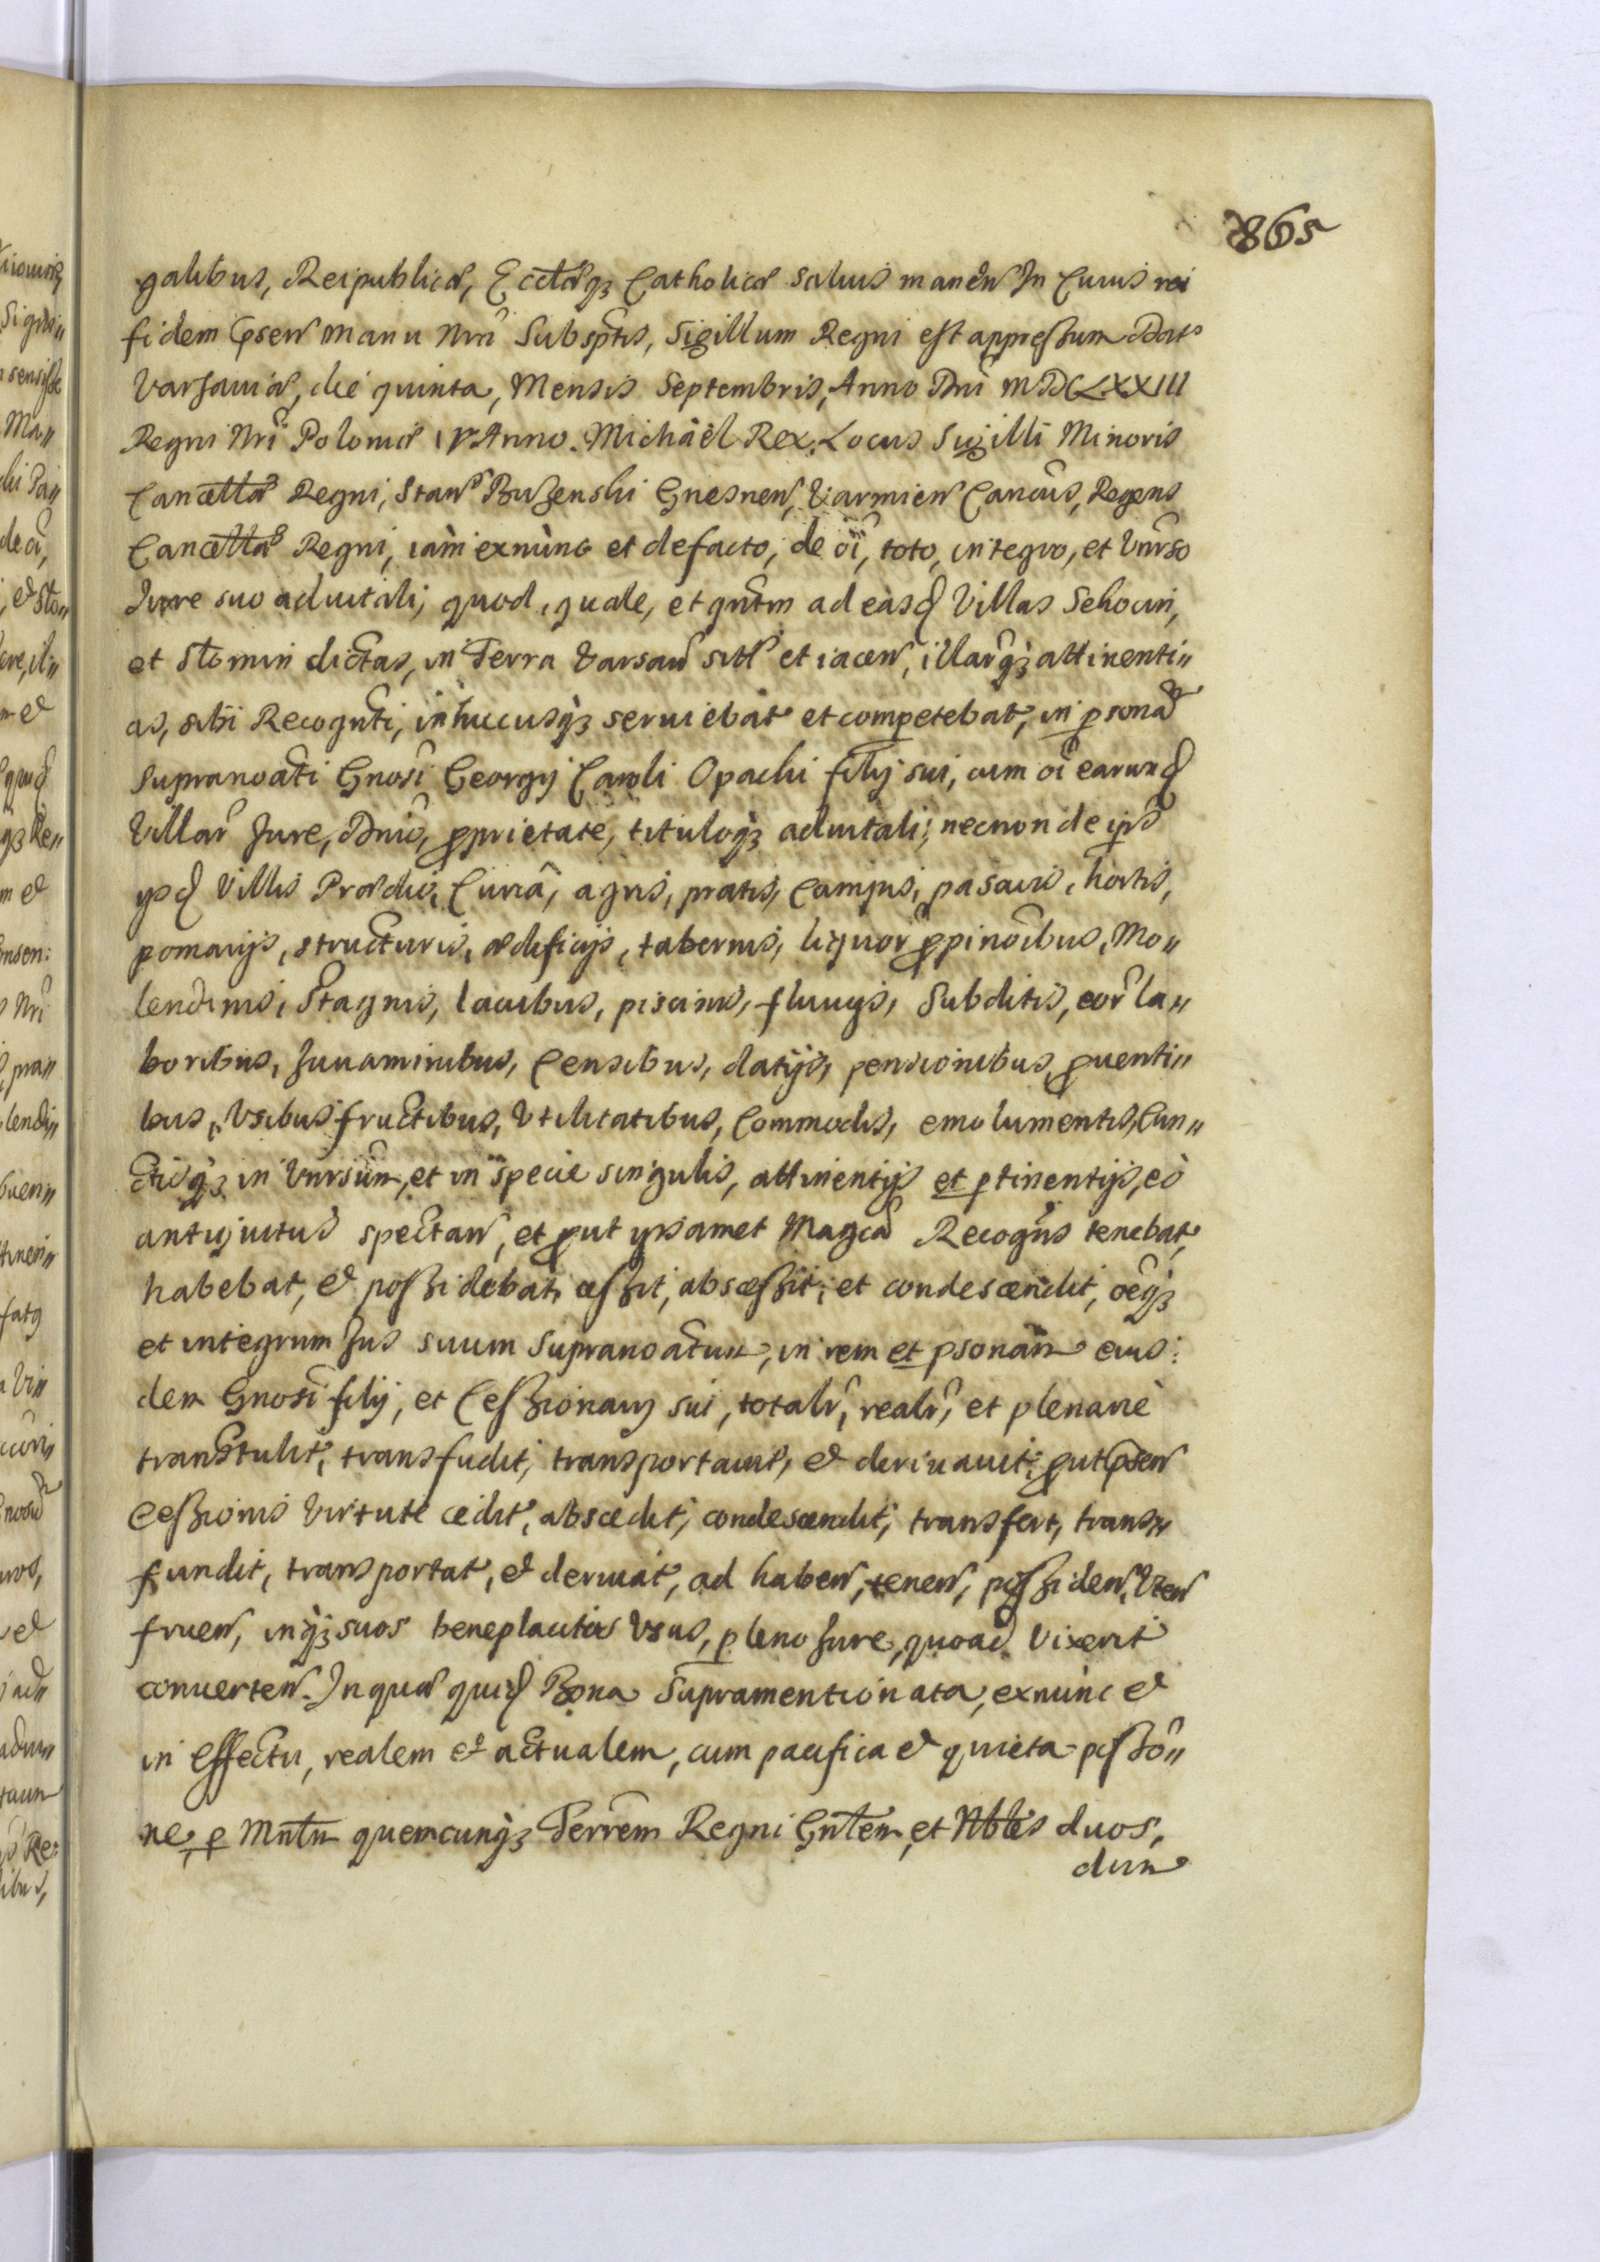 865
galibus, Reipublicæ, Eccl̃æq3 Catholicæ saluis manen̄ In Cuius rei
fidem p̃sen̄ manu Nrĩ Subsp̃tis, Sigillum Regni est appressum Dat
Varsauiæ, die quinta, Mensis Septembris, Anno Dnĩ MDCLXXIII
Regni Nrĩ Poloniæ IV Anno. Michäel Rex. Locus Sigilli Minoris
Cancellæ Regni, Stan̄ Buzenski Gnesnen̄, Varmien̄ Cancus, Regens
Cancellæ Regni, iam exnunc et defacto, de oĩ, toto, integro, et Vnr̃so
Jure suo aduitali, quod, quale, et qntm̃ ad easd Villas Sekocin,
et Stomin dictas, in Terra Varsau̅ sitt et iacen̄, illar̃q3 attinenti„
as, sibi Recogñti, in huccusq3 seruiebat et competebat, in psonã
Supranoãti Gnosi Georgij Caroli Opacki filij sui, cum oĩ earund
Villar̃ Jure, Dnio, proprietate, tituloq3 aduitali; necnon de ips̃
ysd Villis Prædio, Curiâ, agris, pratis, Campis, pascuis, hortis,
pomarijs, structuris, ædificijs, tabernis, liquor̃ propinoĩbus, Mo„
lendinis, Stagnis, lacibus, piscinis, fluuijs, Subditis, eor̃ la„
boribus, Juuaminibus, Censibus, datijs, pensionibus, prouenti„
bus, Vsibus fructibus, Vtilitatibus, Commodis, emolumentis, Cun„
ctisq3 in Vnrsum, et in specie singulis, attinentijs et ptinentijs, eò
antiquitus spectan̄, et prout ipsamet Magcã Recogñs tenebat,
habebat, et possidebat, cessit, abscessit, et condescendit, oẽq3
et integrum Jus suum Supranoãtum, in rem et psonam eius:
dem Gnosi filij, et Cessionarij sui, totalr̃, realr̃, et plenariè
transtulit, transfudit, transportauit, et deriuauit, prout p̃sen̄
Cessionis Virtute cedit, abscedit, condescendit, transfert, trans„
fundit, transportat, et deriuat, ad haben̄, tenen̄, possiden̄, Vten̄
fruen̄, inq3 suos beneplacitos Vsus, pleno Jure, quoad Vixerit
conuerten̄. In quæ quid Bona Supramentionata, exnunc et
in effectu, realem et actualem, cum pacifica et quieta possõ„
ne, p Mnt̃m quemcunq3 Terrẽm Regni Gnt̃em, et Nbles duos,
dum